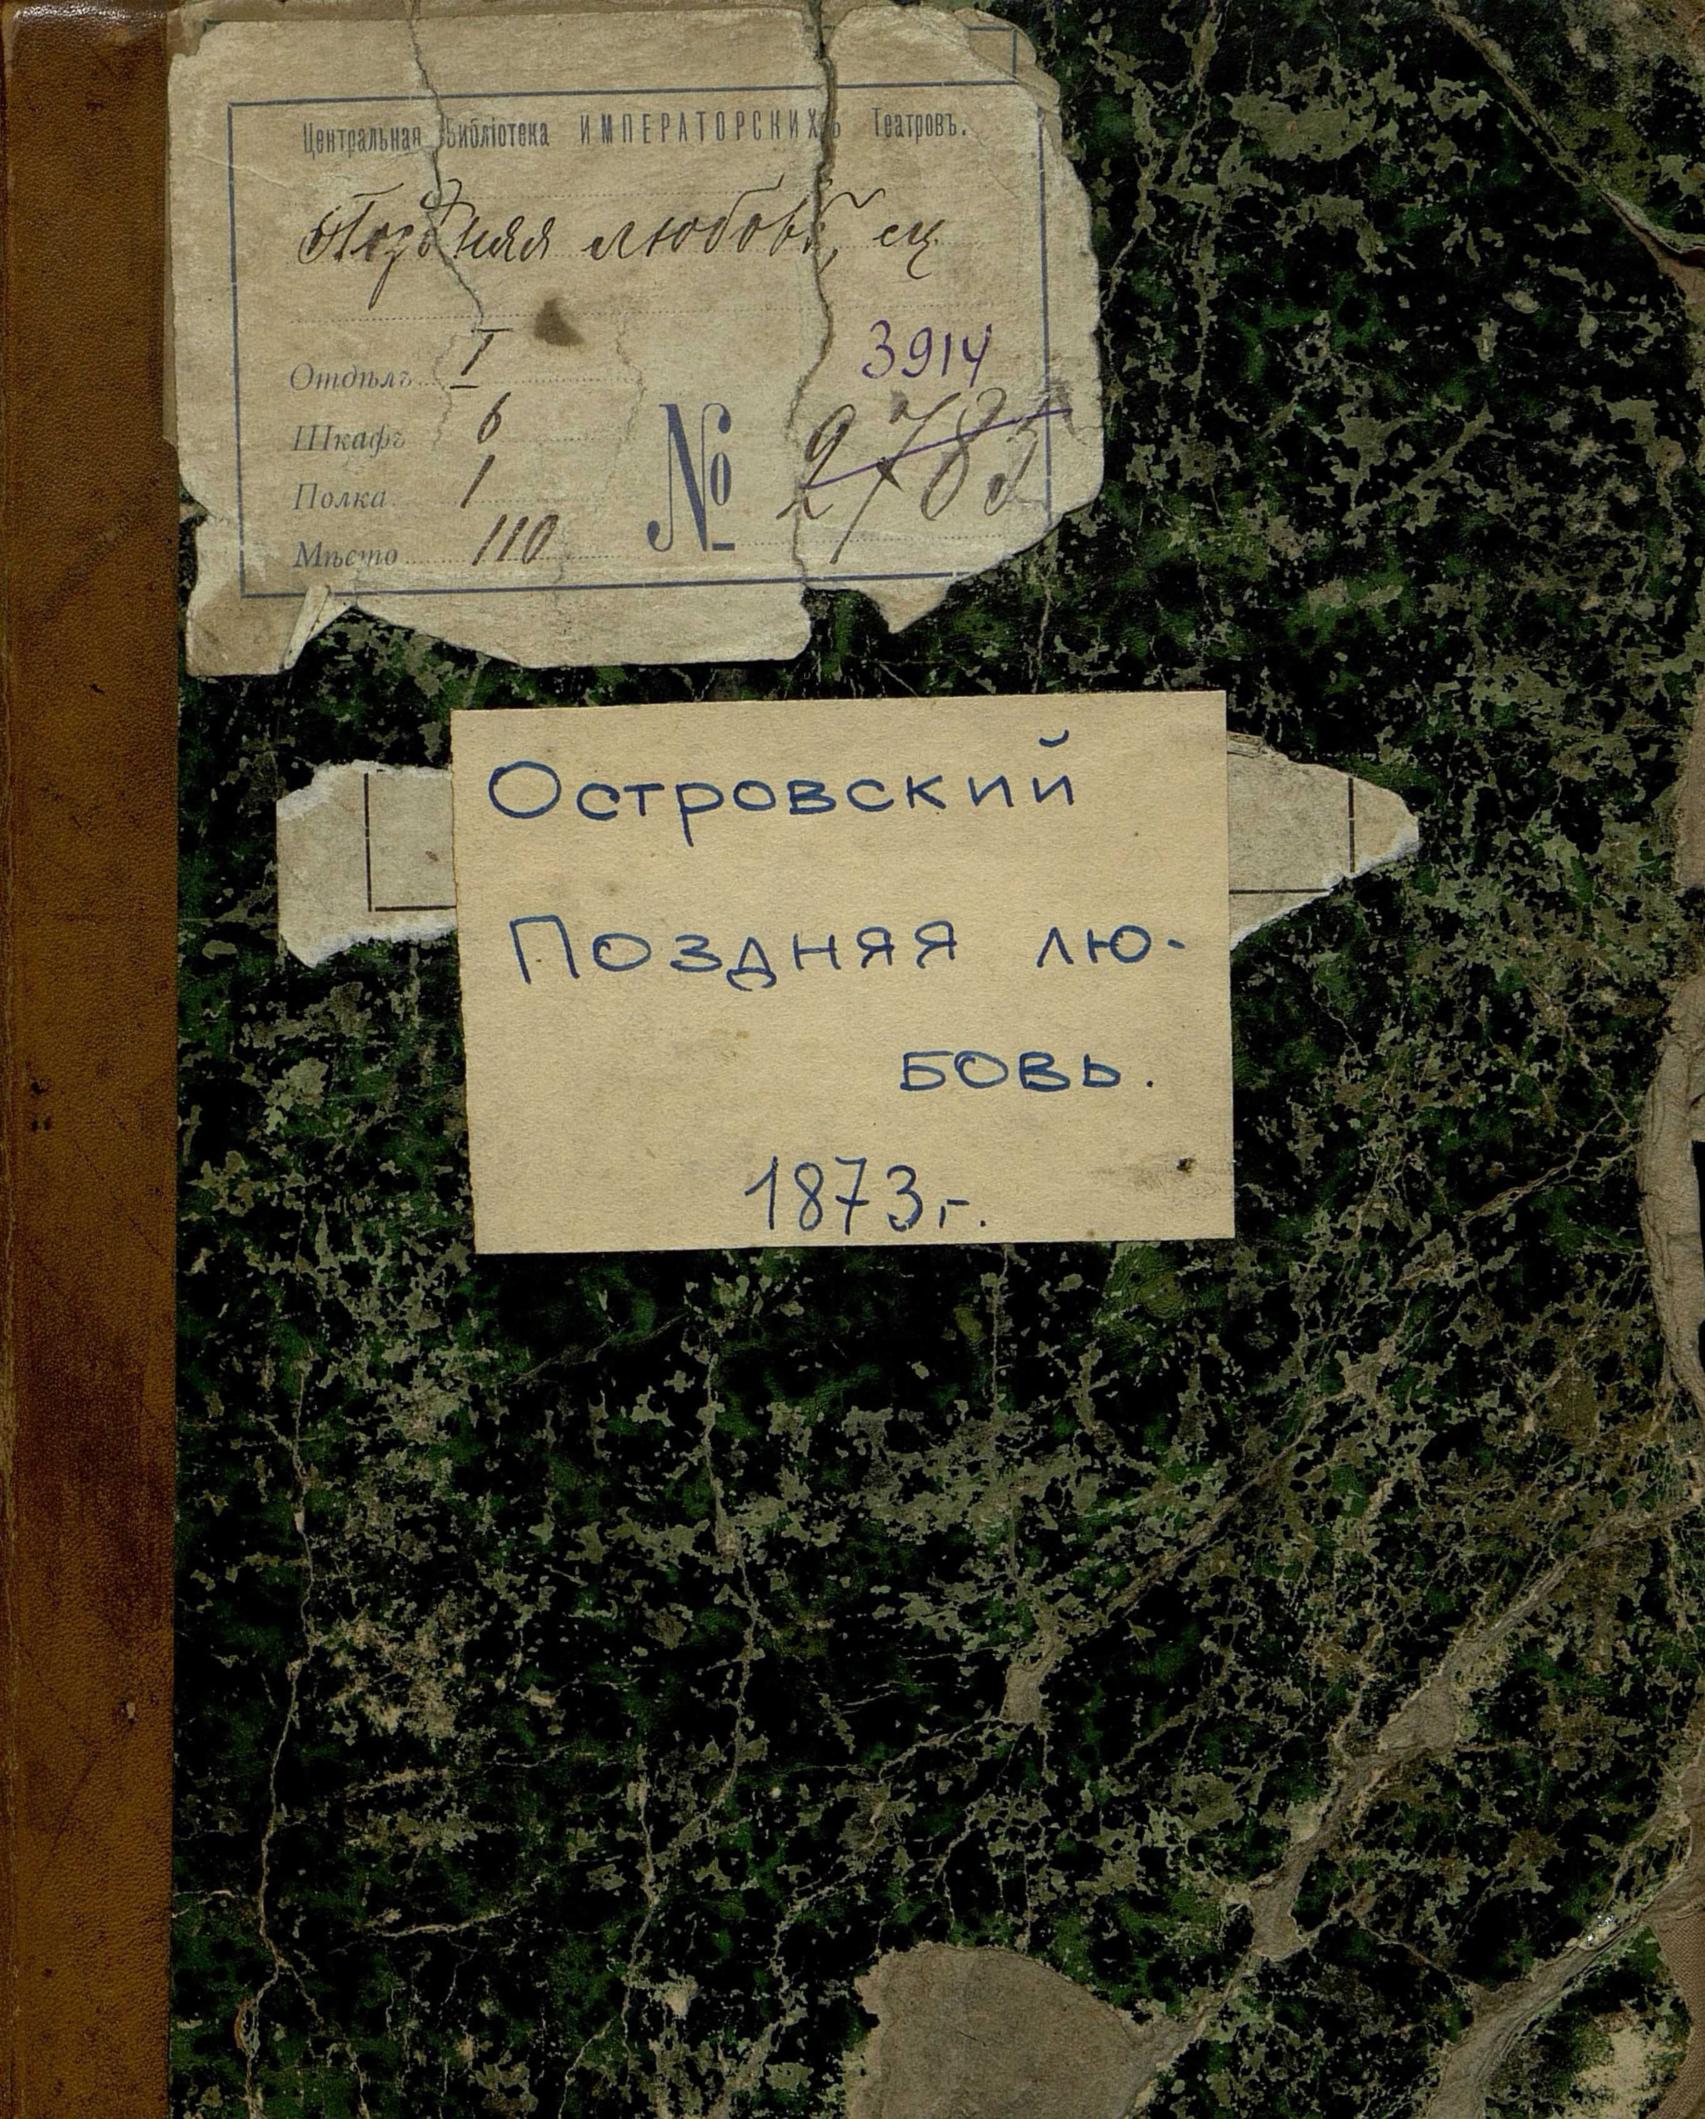 Центральная Библіотека ИМПЕРАТОРСКИХЪ Театровъ.
Поздняя любовь, сц.
Отдѣлъ I
3914
Шкафъ 6
№ 2783
Полка 1
Мѣсто 110
Островский
Поздняя лю-
бовь.
1873 г.